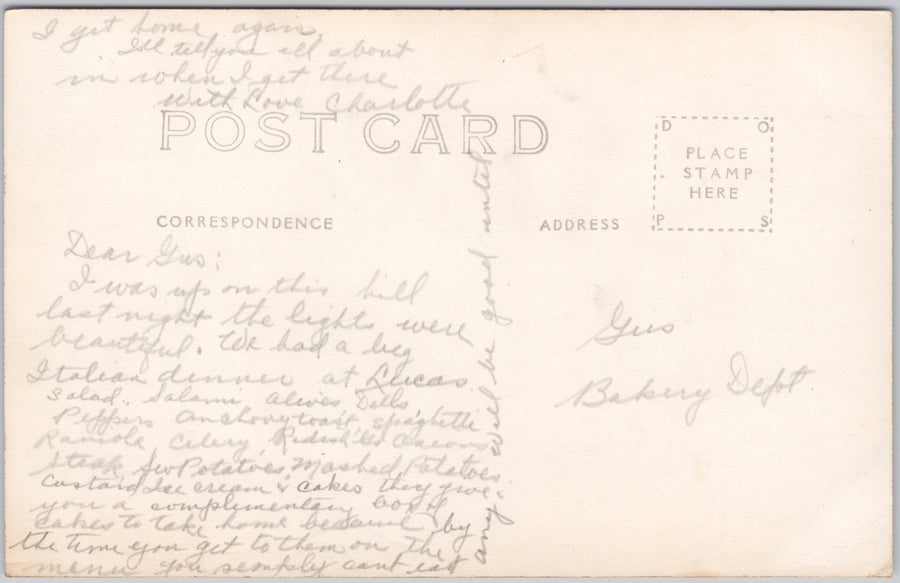 POST CARD
CORRESPONDENCE
ADDRESS
PLACE
STAMP
HERE
D O P S
Dear Gus:
I was up on this hill
last night the lights were
beautiful. We had a big
Italian dinner at Lucas
Salad, Salami Olives Dills
Peppers anchovy toast spaghetti
Raviola Celery Redish
Steak Potatoes Mashed Potatoes
Custard Ice cream & cakes they give
you a complimentary box of
cakes to take home because by
the time you get to them on the
menu you simpley cant eat
any will be good until
I get home again.
I'll tell you all about
in when I get there
With Love Charlotte
Gus
Bakery Dept.